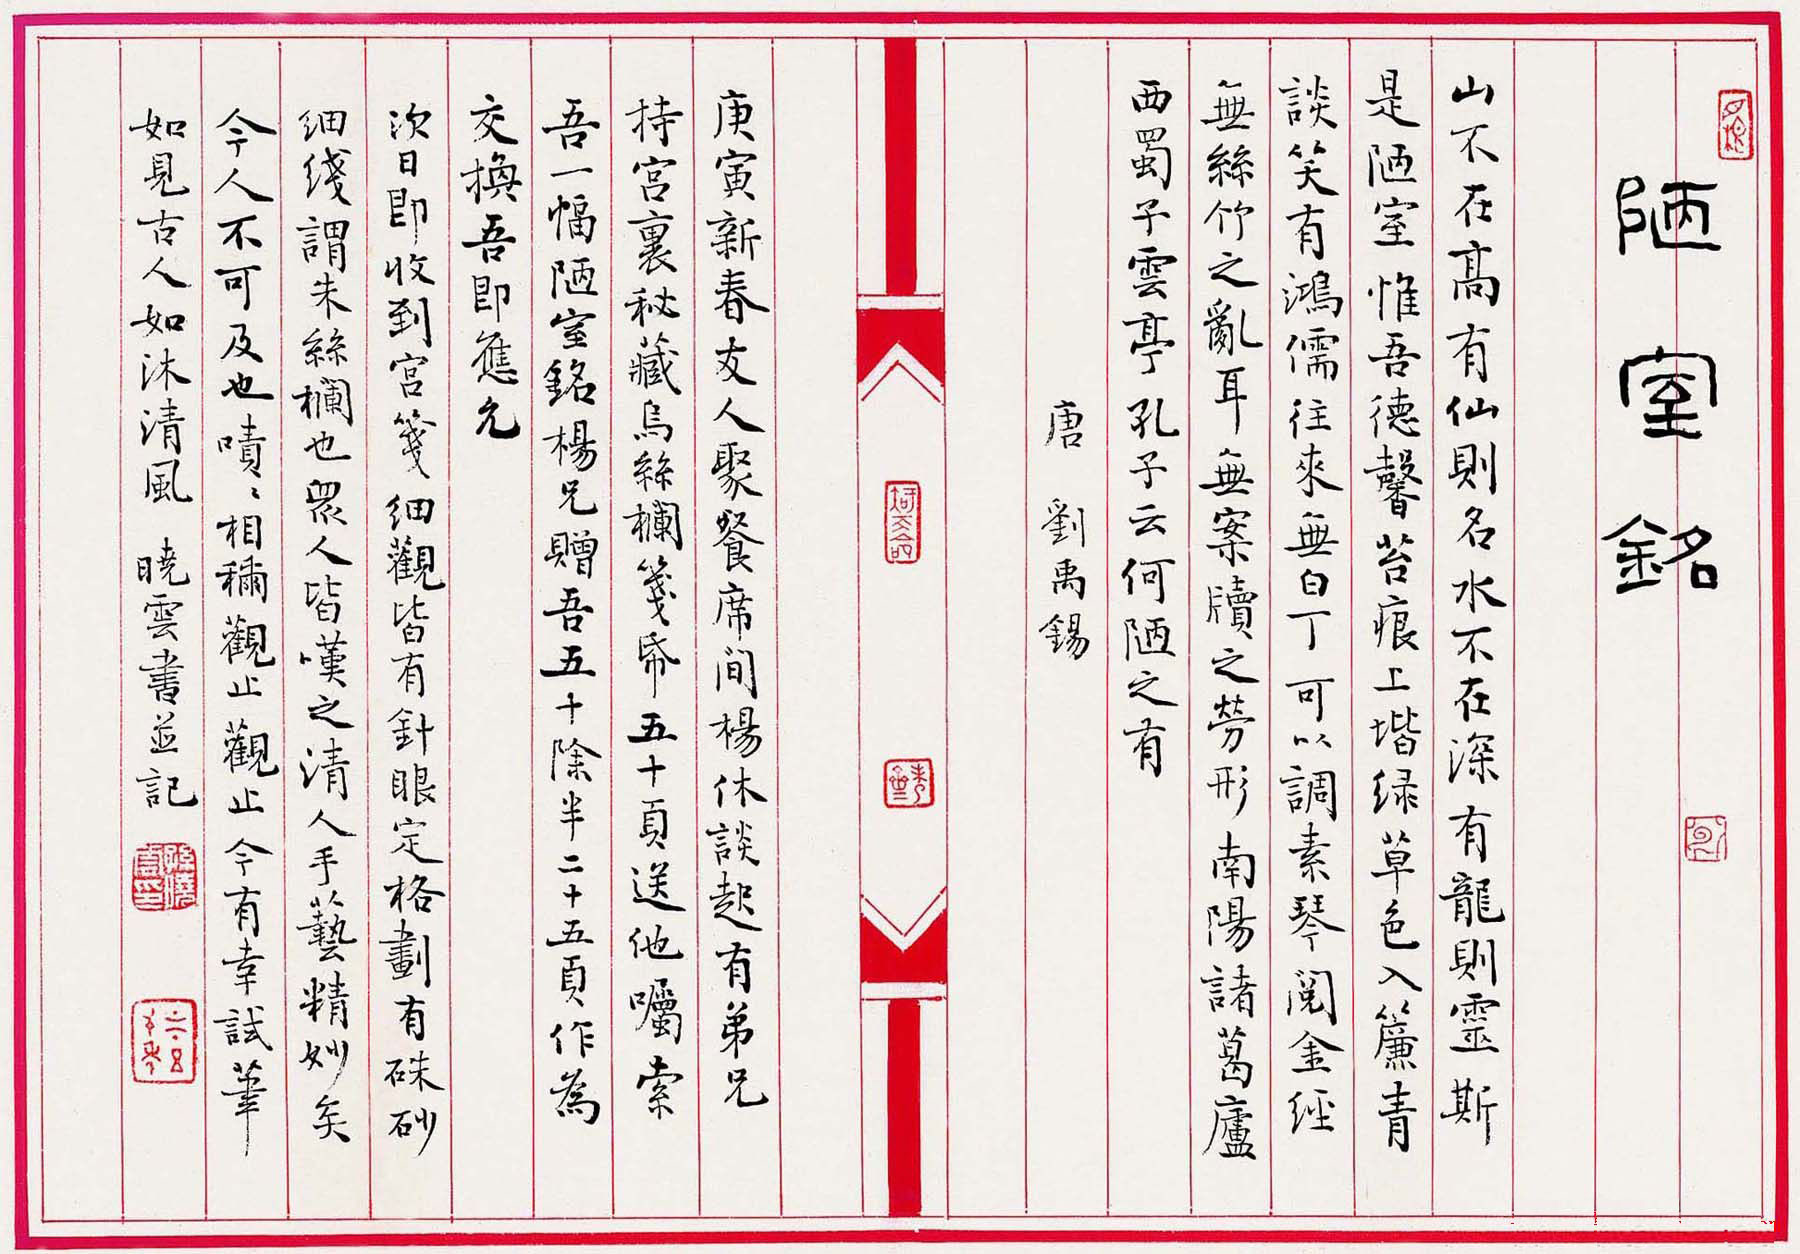 陋室銘
山不在高有仙則名水不在深有龍則靈斯
是陋室惟吾德馨苔痕上堦绿草色入簾青
談笑有鴻儒往來無白丁可以調素琴閱金經
無絲竹之亂耳無案牘之勞形南陽諸葛廬
西蜀子雲亭孔子云何陋之有
唐 劉禹錫
庚寅新春友人聚餐席间楊休談起有弟兄
持宮裏秘藏烏絲欄箋帋五十頁送他囑索
吾一幅陋室銘楊兄贈吾五十除半二十五頁作為
交換吾即應允
次日即收到宮箋细觀皆有針眼定格劃有硃砂
细线謂朱絲欄也眾人皆嘆之清人手藝精妙矣
今人不可及也嘖〻相稱觀止觀止今有幸試筆
如見古人如沐清風 曉雲書並記